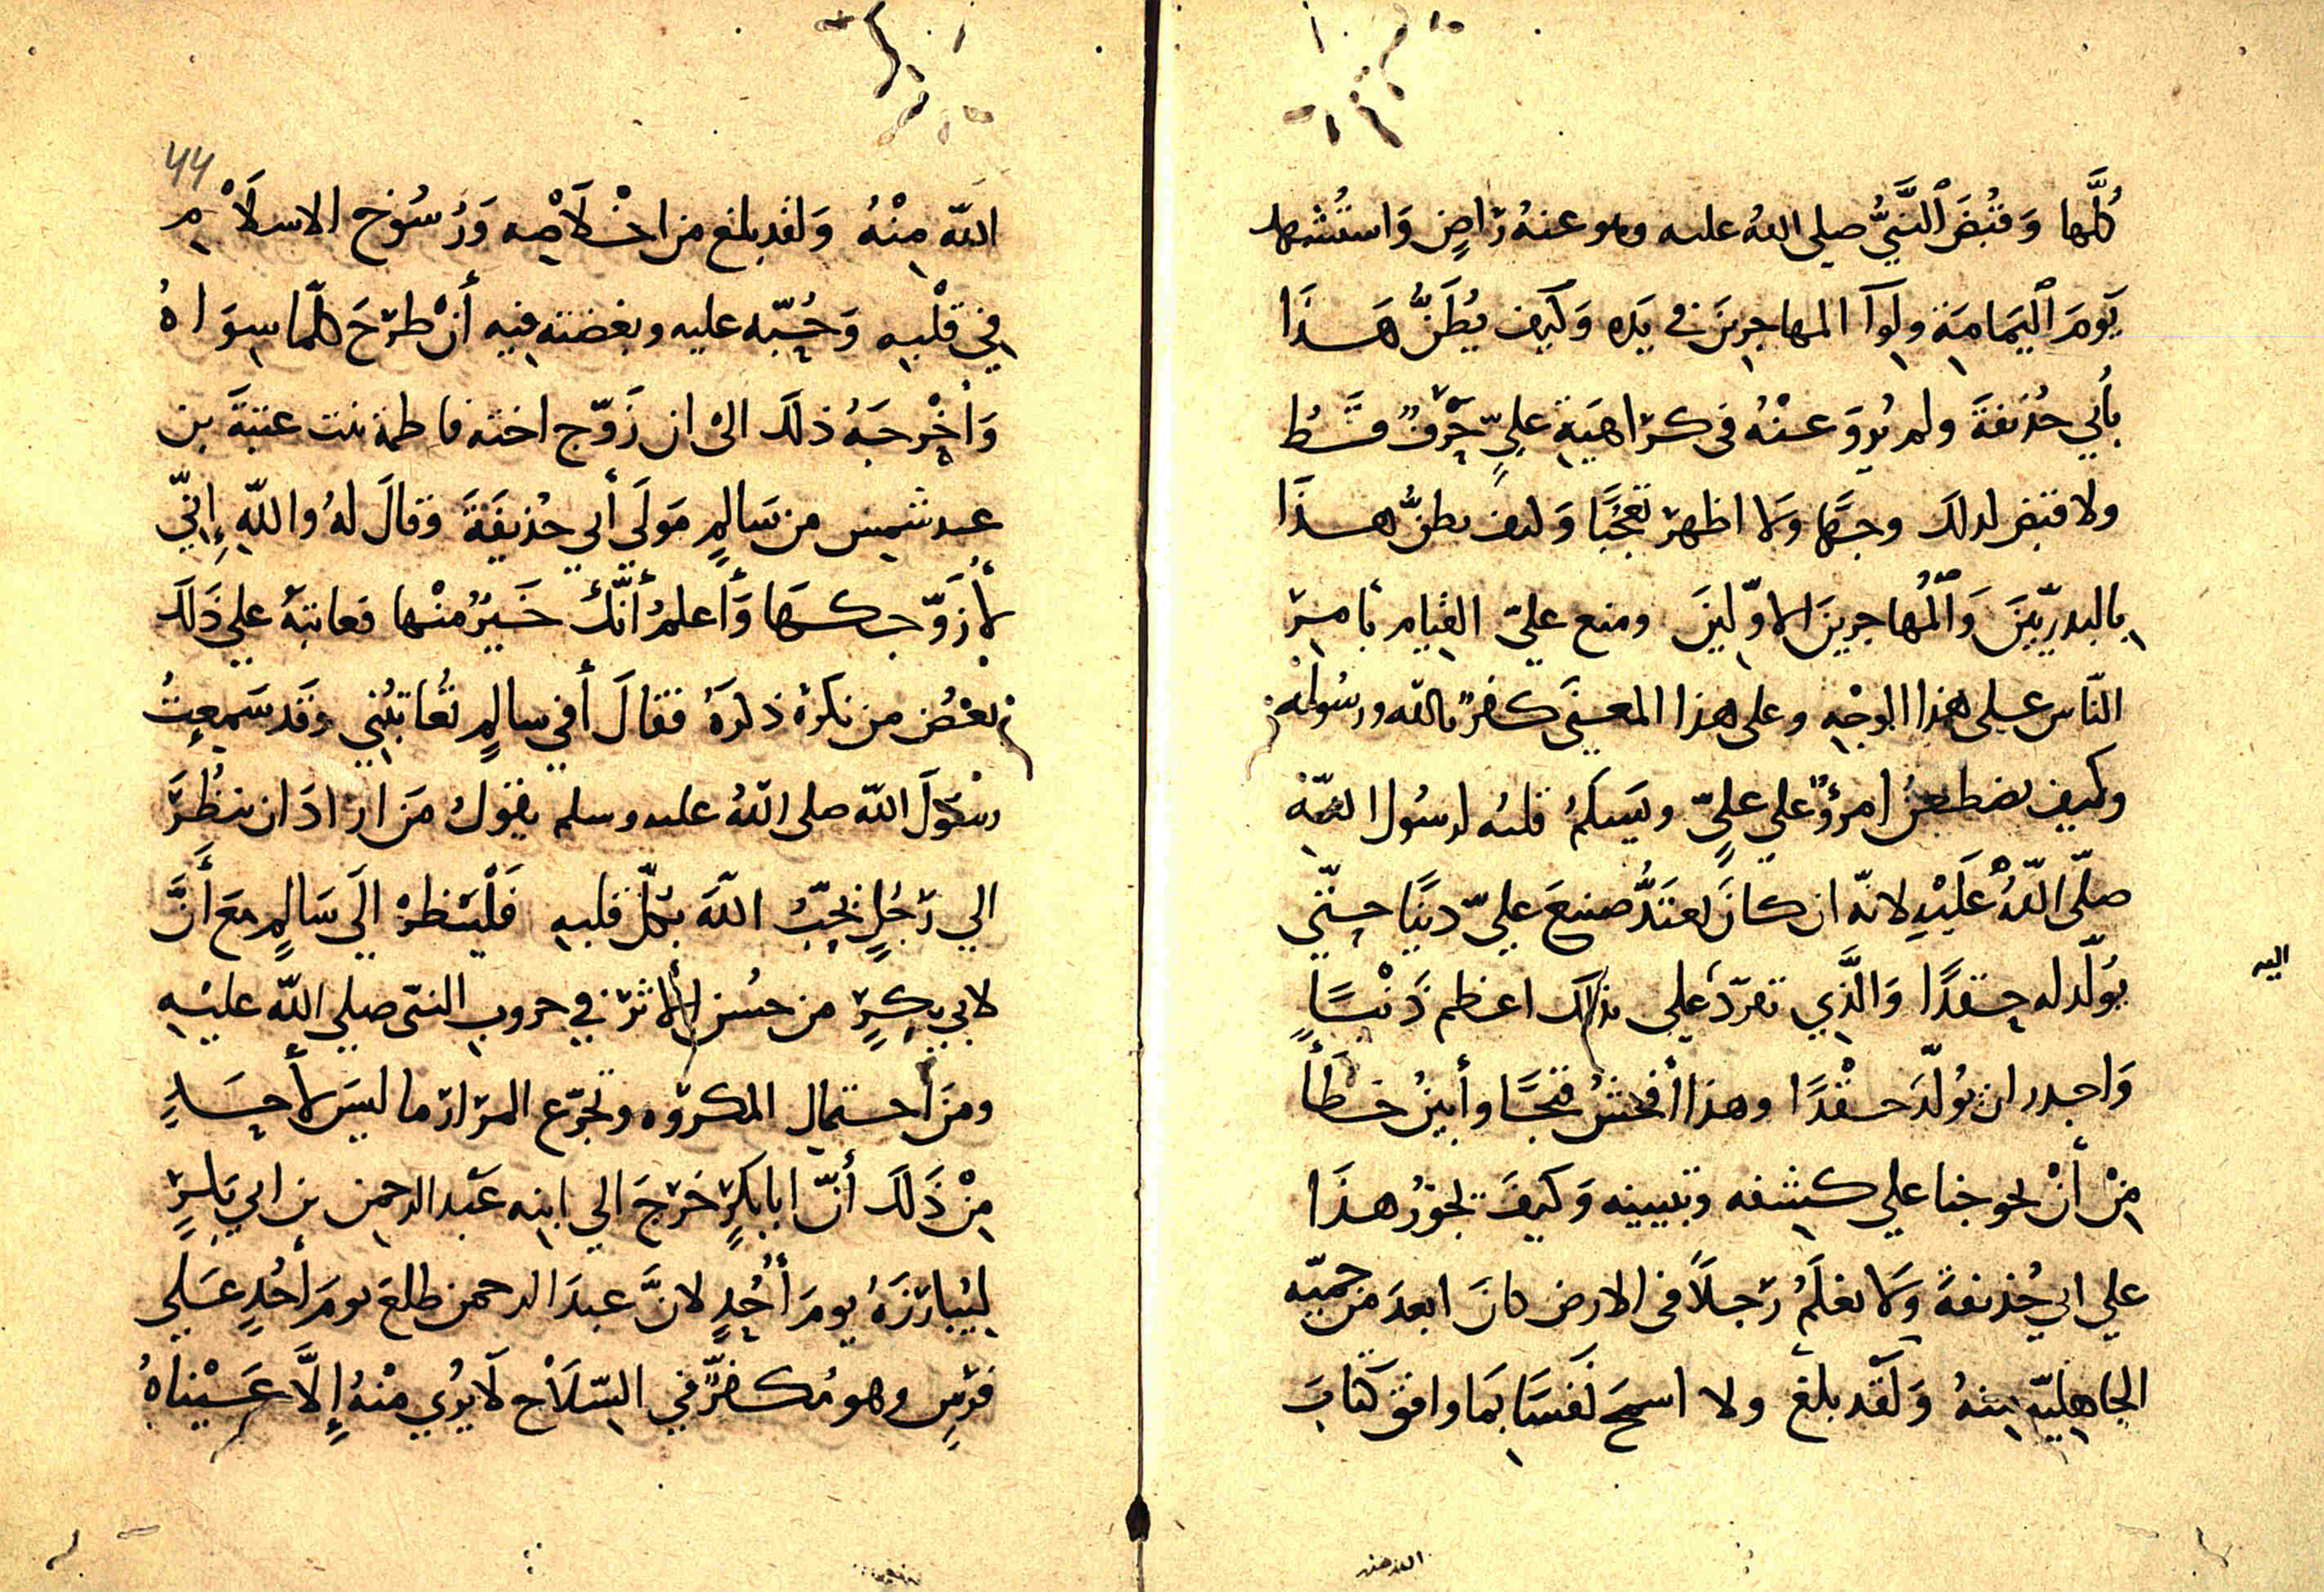 كُلَّها وَقُبضَ ٱلنَّبيُّ صلى اللهُ عليه وهو عنهُ رَاضٍ وَاستُشهد
يَومَ ٱليَمامَةِ ولِوَآ المهاجِرِينَ في يَدِه وَكَيف يُظَنُّ هَذَا
بأَبي حُذَيفَةَ ولم يُروَ عنْهُ في كرَاهَيَةِ عليٍّ حَرْفٌ قَطُّ
ولا قبض لذلك وجهًا ولا اظهرَ تعَجُّبًا وَكيف يظنُّ هذَا
بِالبدرِيّينَ وَٱلْمُهاجرينَ الاوّلِينَ ومنع عليّ القيامِ بأمرِ
النّاس على هذا الوجْهِ وعلى هذا المعنَى كفرٌ بالله ورسُولِه
وكيف يضطعِنُ امرؤٌ علي عليٍّ ويَسلَمُ قلبُه لرسُول اللهِ
صلّى اللّهُ عَلَيْهِ لانّه ان كانَ يعتَدُّ صنيعَ عليّ دينًا حتّي
يُولّد له حِقدًا وَالَّذِي تفرّد علي ذلك اعظم ذنْبًا
وَاجدر ان يُولّدَ حقْدًا وهذا أفحشُ قبحًا وأبينُ خطَأً
مِنْ أَنْ يحوجنا علي كشفِه وتبيينه وَكيفَ يجوزُ هذَا
علي ابي حُذيفةَ وَلا نعْلَمُ رَجلًا في الارض كانَ ابعدَ من حميّه
الجاهِليّه مِنهُ وَلَقَد بلغَ ولا اسمحَ نَفسًا بِمَا وافق كتابَ
اليه
الله منه
44
اللّهِ مِنْهُ وَلقد بلغ من اخْلَاصِه وَرُسُوخ الاسلَاْمِ
في قلْبِهِ وَحُبِّه عليه وبغضته فِيه أَنْ طرَحَ كلّما سِوَاهُ
وَأَخْرجَهُ ذلكَ الى ان زَوّج اخته فاطمة بنت عتبَةَ بن
عبد شمسٍ من سَالمٍ مَولَي أبي حُذيفَةَ وَقالَ لهُ واللّهِ إِنّي
لأُزَوِّجكَهَا وَأَعلمُ أَنَّكَ خَيرٌ منْها فعاتبَهُ علي ذَلكَ
بعْضُ من نكرهُ ذكرَهُ فقالَ أفي سالمٍ تُعاتِبُني وَقَد سَمِعتُ
رسُولَ اللّه صلى اللّهُ عليه وسلم يقولُ مَن ارادَ ان ينظُرَ
الي رَجُلٍ يُحِبُّ اللّهَ بكلّ قلبِهِ فَلْيَنظرْ الَي سَالمٍ معَ أَنَّ
لابي بكرٍ من حسُنِ الأثرِ في حروبِ النبّى صلي اللّه عليْهِ
ومن احتمالِ المكروه وتجرّع المرَارَ ما ليسَ لأحَدٍ
مِنْ ذَلكَ أَنّ ابا بكرٍ خرَجَ الي ابنِه عَبْد الرحمنِ بن ابي بكرٍ
لِيُبارزَهُ يومَ أُحُدٍ لانَّ عبدَ الرحمن طلعَ يومَ أُحُدٍ عَلي
فرَسٍ وهو مُكفرٌ في السّلَاحِ لَا يُري مِنْهُ إِلَّا عَيْناهُ